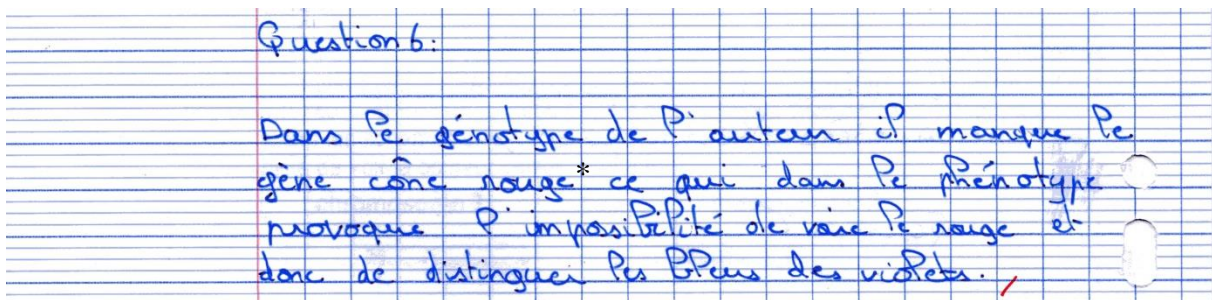 Question 6:
Dans le génotype de l'auteur il manque le
gène cône rouge* ce qui dans le phénotype
provoque l'impossibilité de voir le rouge et
donc de distinguer les bleus des violets.